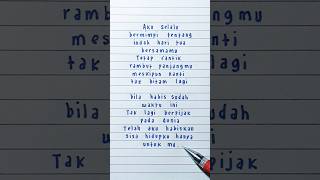 Aku selalu
bermimpi tentang
indah hari tua
bersamamu
Tetap cantik
rambut panjangmu
meskipun nanti
tak hitam lagi
bila habis sudah
waktu ini
Tak lagi berpijak
pada dunia
Telah aku habiskan
sisa hidupku hanya
untuk mu